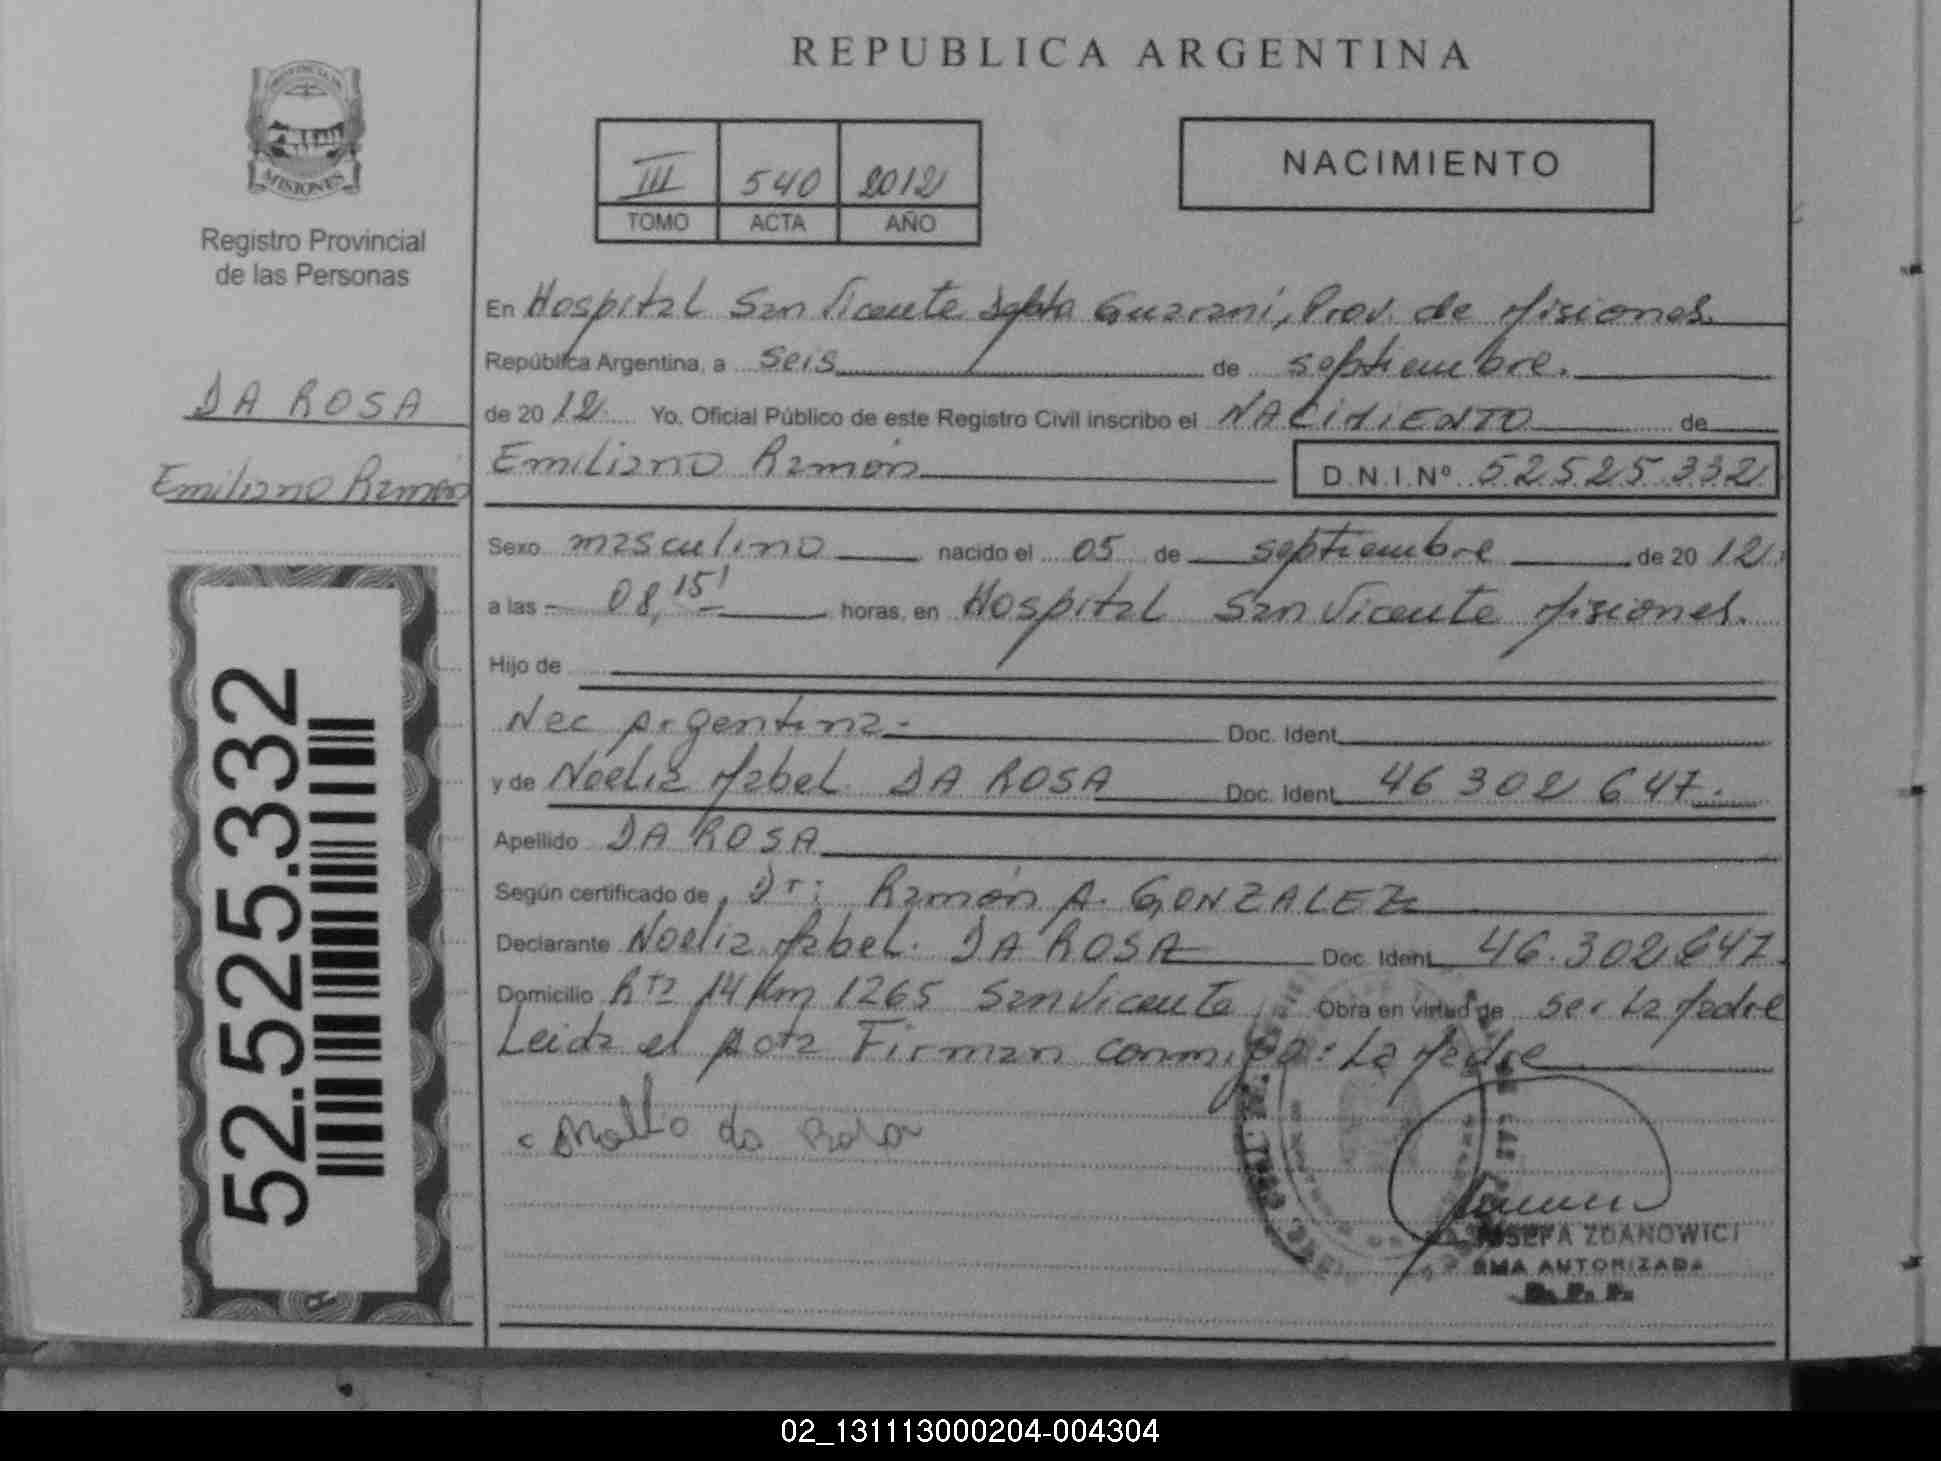 REPUBLICA ARGENTINA
PROVINCIA DE
MISIONES
Registro Provincial
de las Personas
DA ROSA
Emiliano Ramón
52.525.332
III 540 2012
TOMO ACTA AÑO
NACIMIENTO
En Hospital San Vicente Dpto Guarani, Prov. de Misiones.
República Argentina, a seis de septiembre.
de 2012 Yo. Oficial Público de este Registro Civil inscribo el NACIMIENTO de
Emiliano Ramón D.N.I.Nº 52525332
Sexo masculino nacido el 05 de septiembre de 2012.
a las 08,15' horas, en Hospital San Vicente Misiones.
Hijo de
Nac Argentina- Doc. Ident.
y de Noelia Mabel DA ROSA Doc. Ident. 46 302 647.
Apellido DA ROSA
Según certificado de Dr: Ramón A. GONZALEZ
Declarante Noelia Mabel. DA ROSA Doc. Ident. 46.302.647
Domicilio Rta 14 Km 1265 San Vicente Obra en virtud de ser La Madre
Leida el Acta Firman conmigo: La Madre
da Rosa
JOSEFA ZDANOWICZ
FIRMA AUTORIZADA
R. P. P.
02_131113000204-004304